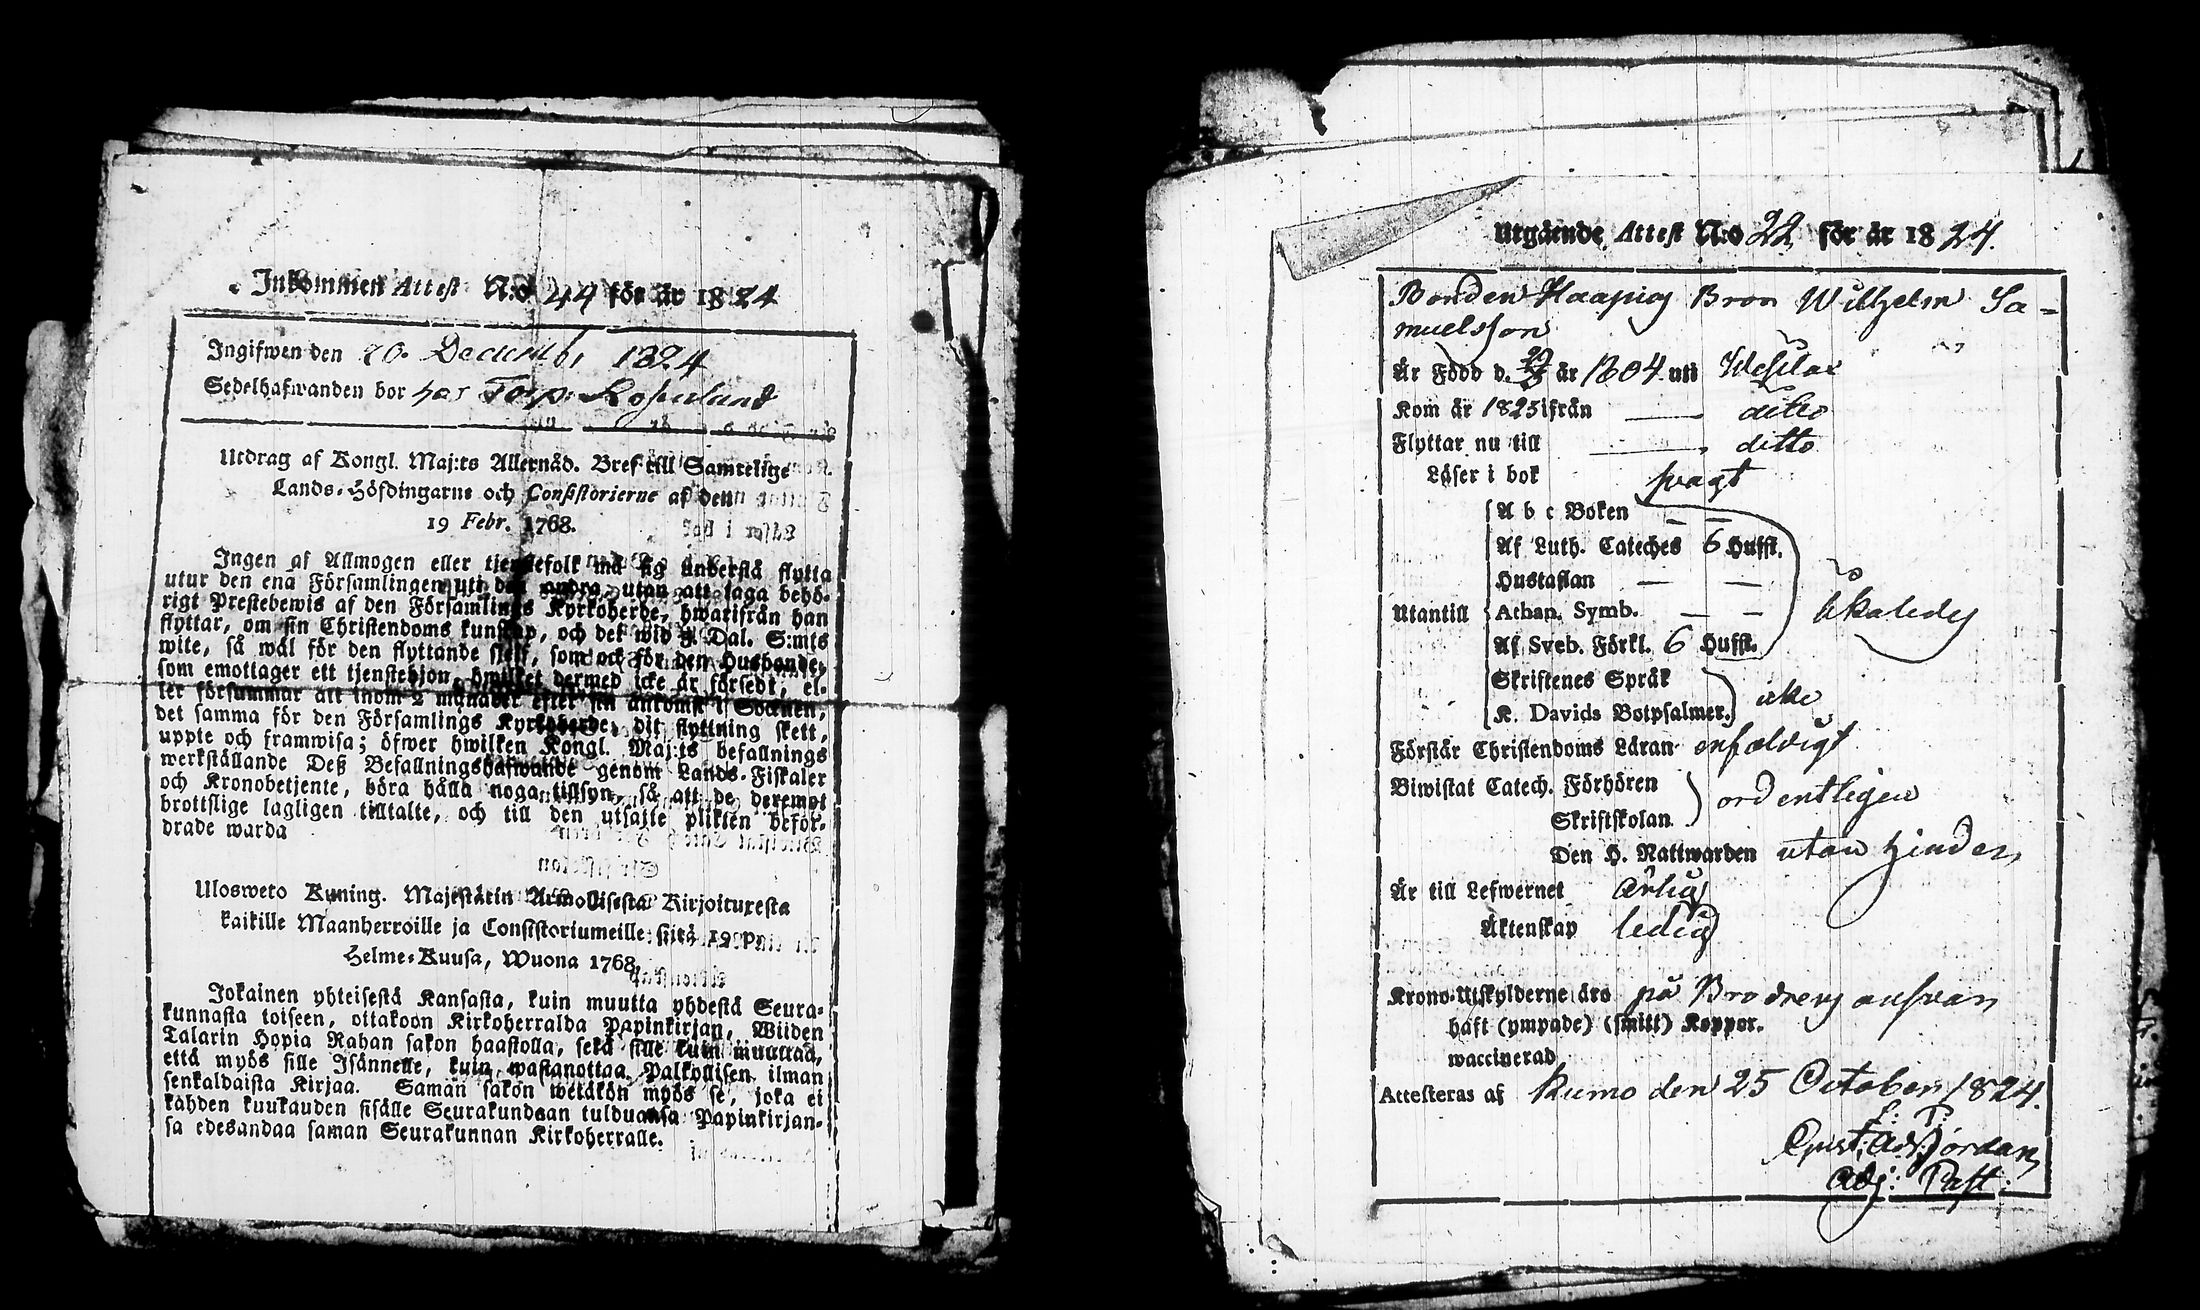 Inkommen Attest N:o 44 för år 1824
Ingifwen den 20. Decemb, 1824
Sedelhafwanden bor hos Torp.
Utdrag af Kongl. Maj:ts Allernåd. Bref till Samtelige
Lands-Höfdingarne och Consistorierne af den
19 Febr. 1768.
Ingen af Allmogen eller tjenstefolk må sig understå flytta
utur den ena Församlingen uti den andra, utan att taga behö-
rigt Prestebewis af den Församlings Kyrkoherde, hwarifrån han
flyttar, om sin Christendoms kunskap, och det wid 5 Dal. S:mts
wite, så wäl för den flyttande sjelf, som ock för den Husbonde,
som emottager ett tjenstehjon, hwilket dermed icke är försedt, el-
ler försummar att inom 2 månader efter sin ankomst i Socknen,
det samma för den Församlings Kyrkoherde, dit flyttning skett,
uppte och framwisa; öfwer hwilken Kongl. Maj:ts befallnings
werkställande Deß Befallningshafwande genom Lands-Fiskaler
och Kronobetjente, böra hålla noga tillsyn, så att de deremot
brottslige lagligen tilltalte, och till den utsatte plikten beför-
drade warda
Ulosweto Kuning. Majestätin Armollisesta Kirjoituxesta
kaikille Maanherroille ja Consistoriumeille, siitä 19 p:
Helme-Kuusa, Wuona 1768.
Jokainen yhteisestä Kansasta, kuin muutta yhdestä Seura-
kunnasta toiseen, ottakoon Kirkoherralda Papinkirjan, Wiiden
Talarin Hopia Rahan sakon haastolla, sekä sille kuin muuttaa,
että myös sille Isännelle, kuin wastanottaa Palkollisen ilman
senkaldaista Kirjaa. Saman sakon wetäkön myös se, joka ei
kahden kuukauden sisälle Seurakundaan tulduansa Papinkirjan-
sa edesandaa saman Seurakunnan Kirkoherralle.
Utgående Attest N:o 22 för år 1824.
Bonden Haapios Bron Wilhelm Sa-
muelsson
Är Född d. år 1804 uti
Kom år 1823 ifrån — ditto
Flyttar nu till — ditto
Läser i bok swagt
A b c Boken — —
Af Luth. Cateches 6 Hufst.
Hustaflan — —
Utantill Athan. Symb. — —
Af Sveb. Förkl. 6 Hufst.
Skriftenes Språk
K. Davids Botpsalmer. icke
Förstår Christendoms Läran enfaldigt
Biwistat Catech. Förhören
Skriftskolan ordentligen
Den H. Nattwarden utan hinder
Är till Lefwernet ärlig
Äktenskap ledig
Krono-Utskylderne äro på Broderns answar
haft (ympade) (smitt) Koppor.
waccinerad
Attesteras af Kumo den 25 October 1824.
L: P:
Gust: Adolf Jordan
Adj: Past: